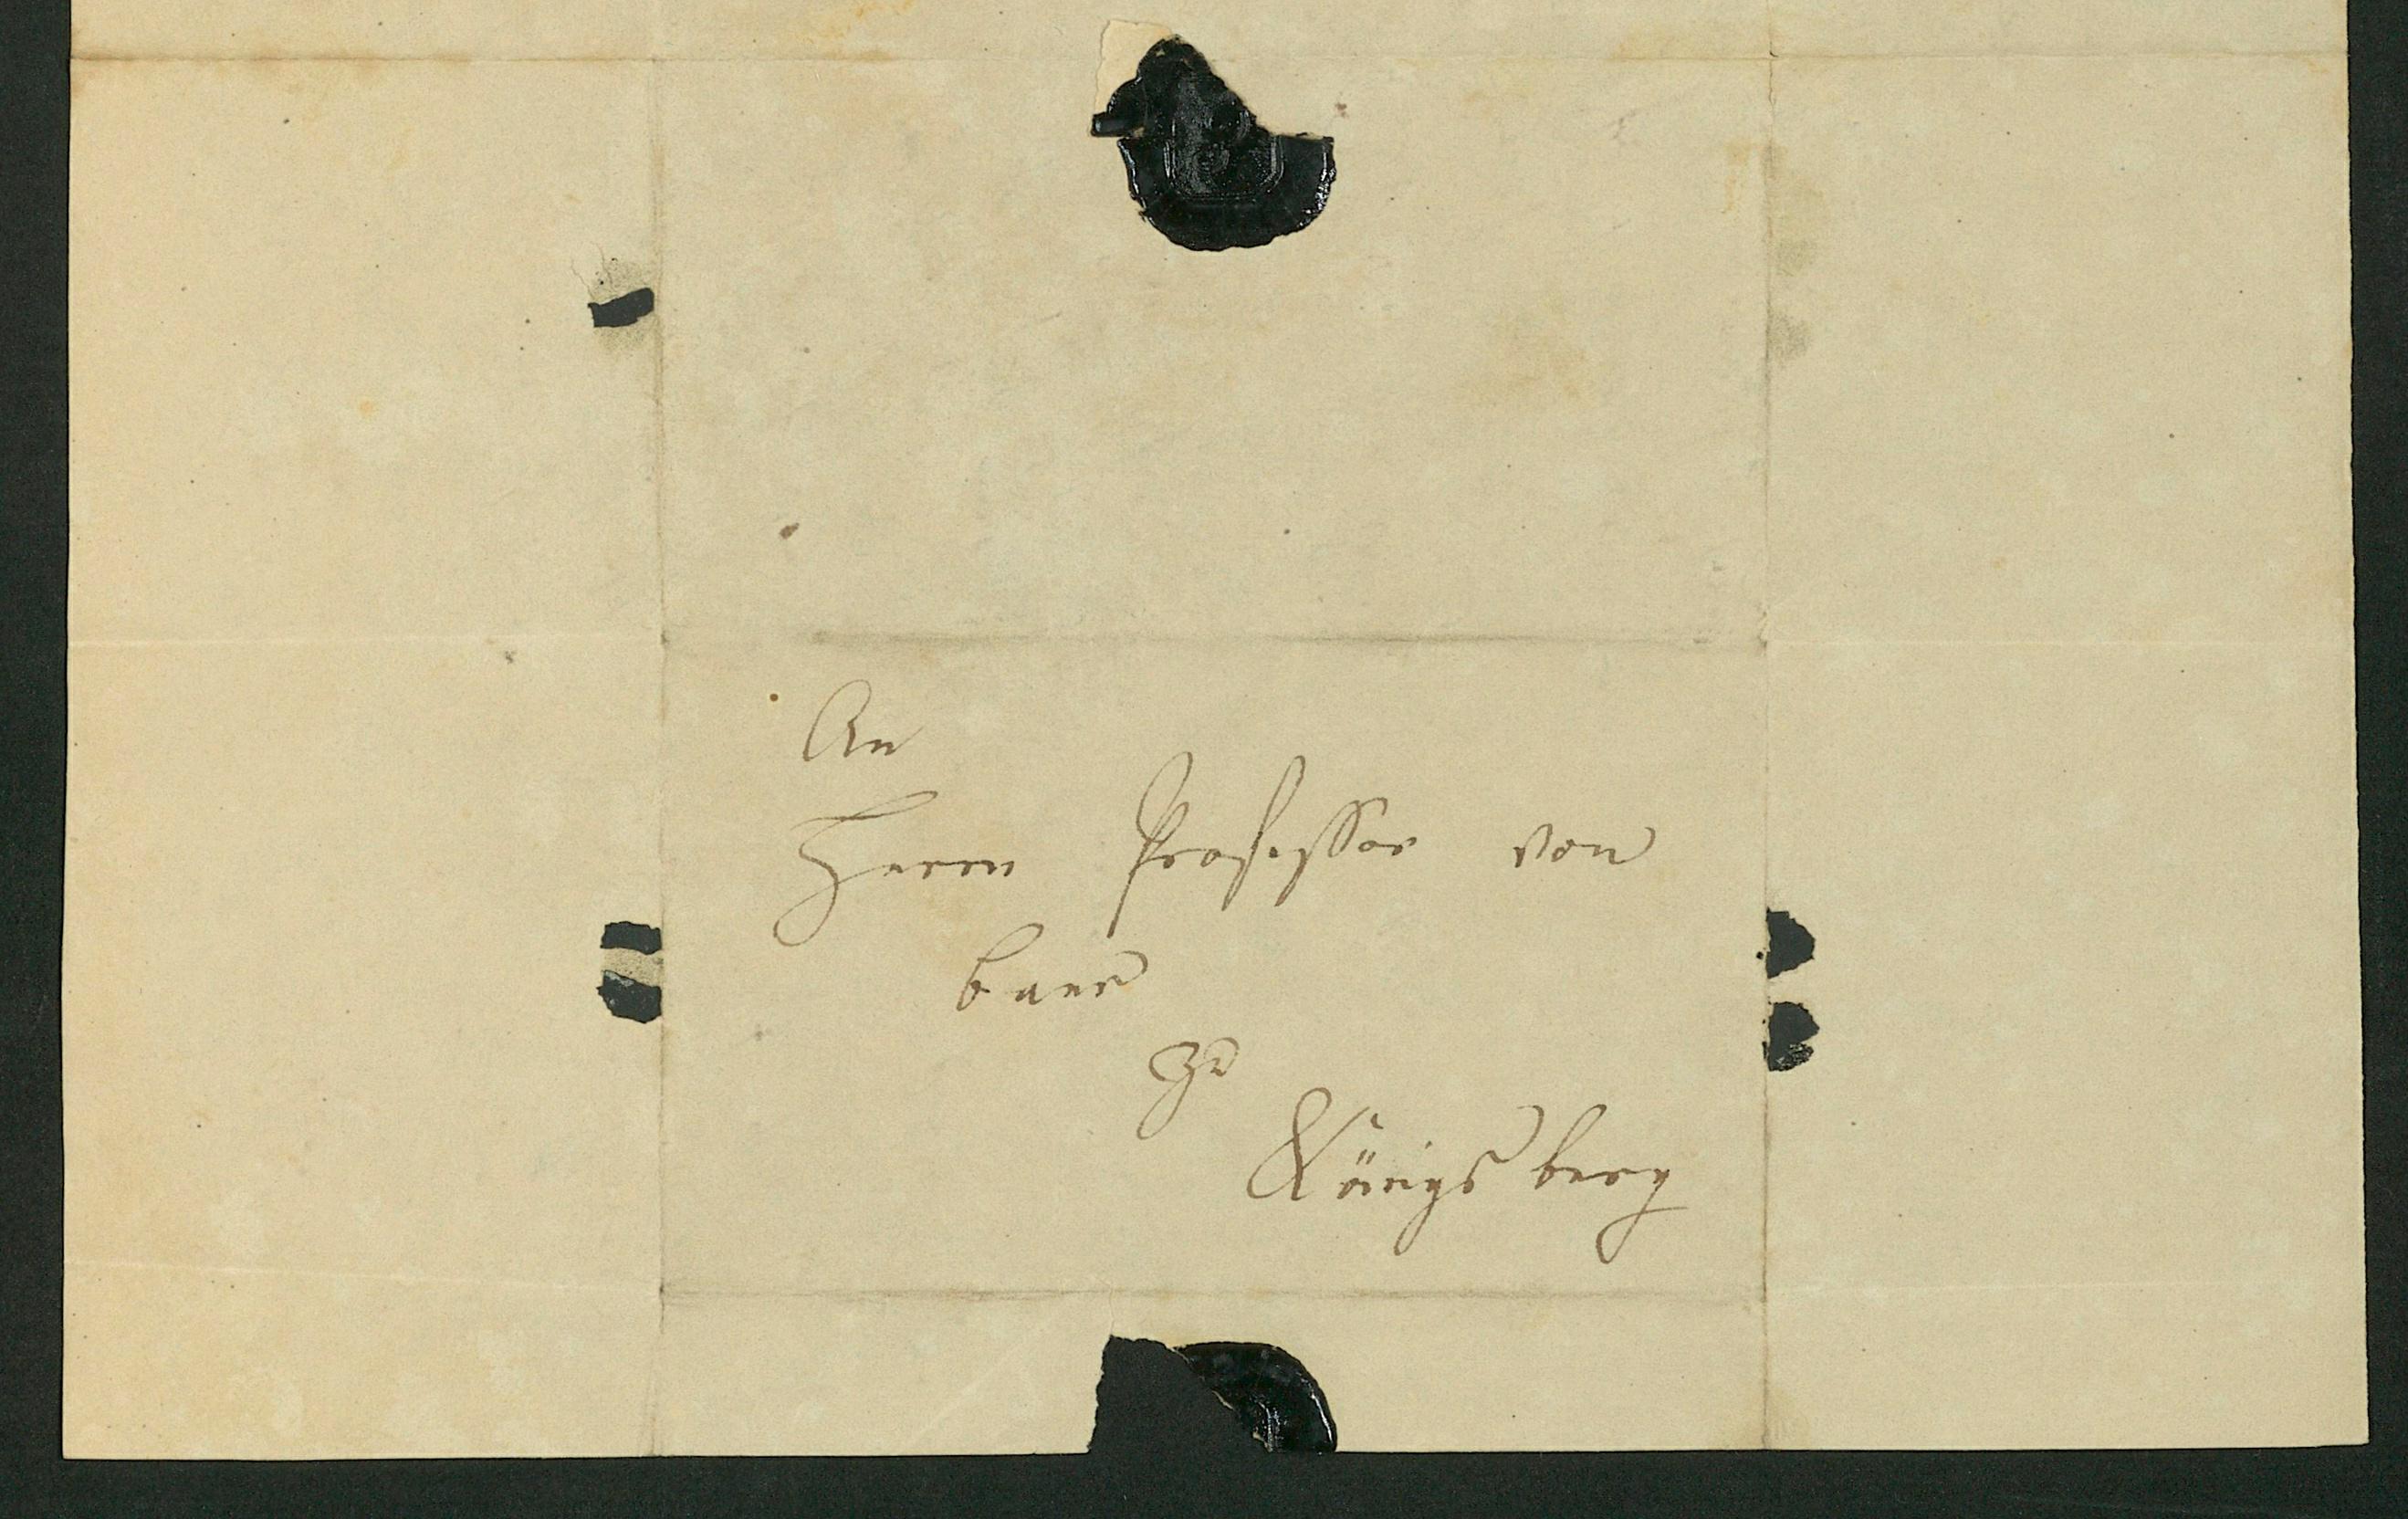 An
Herrn Professor von
Baer
zu
Königsberg